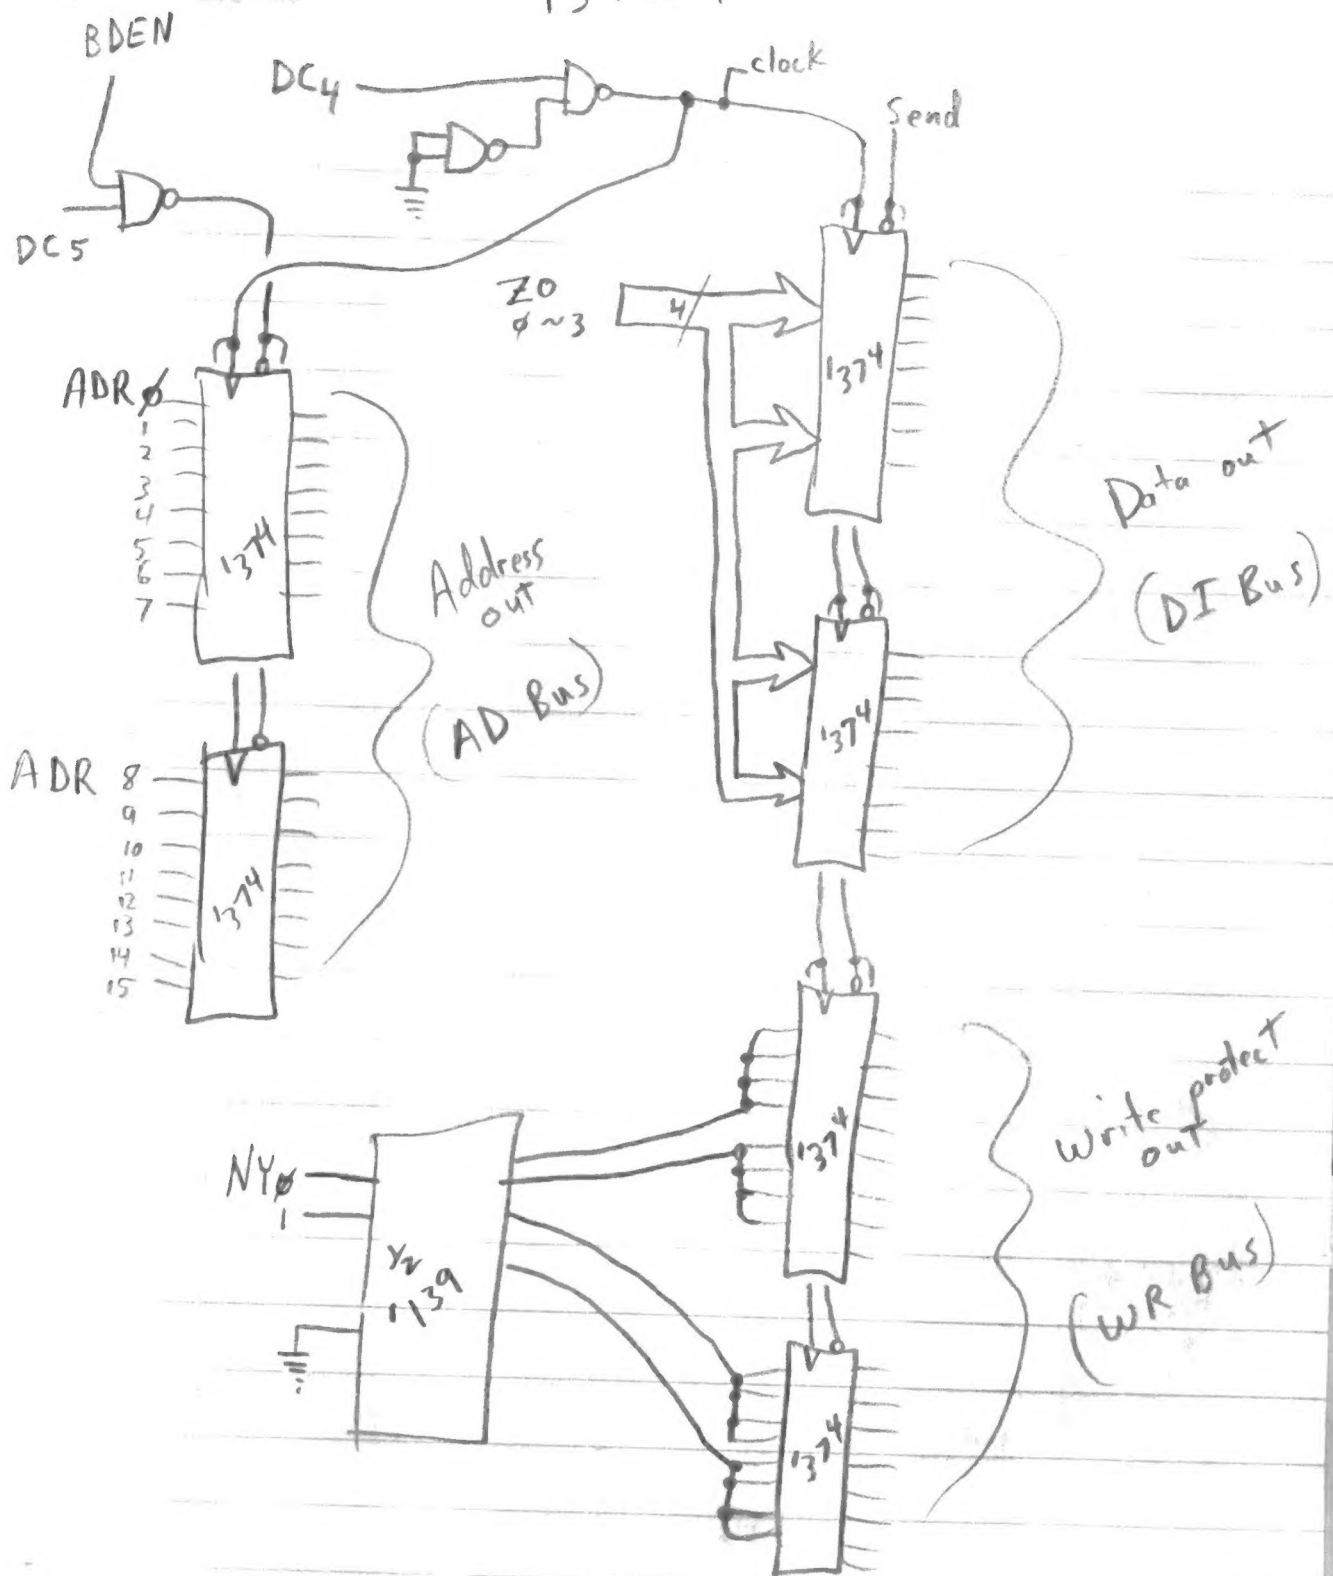 BDEN
DC4
clock
Send
DC5
ZØ
Ø~3
4
'374
ADRØ
1
2
3
4
5
6
7
'374
Address
out
(AD Bus)
Data out
(DI Bus)
'374
ADR 8
9
10
11
12
13
14
15
'374
'374
Write protect
out
(WR Bus)
NYØ
1
1/2
'139
'374